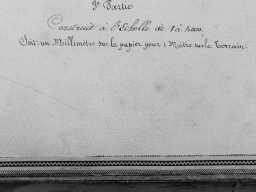 3e Partie
Construit à l'Echelle de 1 à 1000,
Soit un Millimètre sur le papier pour 1 Mètre sur le Terrain.